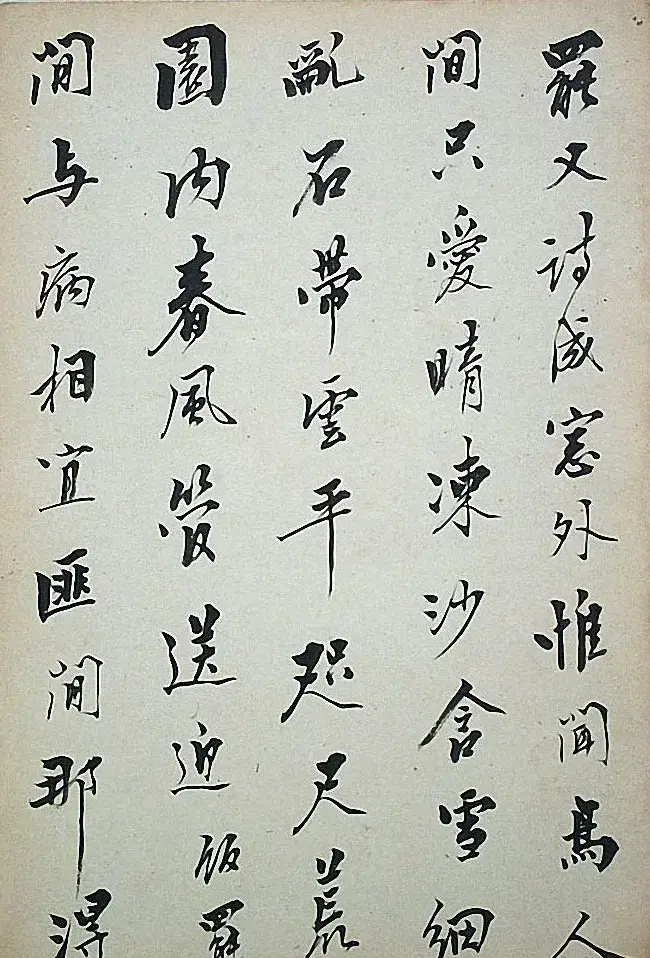 罷又詩成窓外惟聞鳥人
閒只愛晴凍沙含雪細
亂石帶雲平咫尺荒
園内春風管送迎飯罷
閒与病相宜匪閒那得